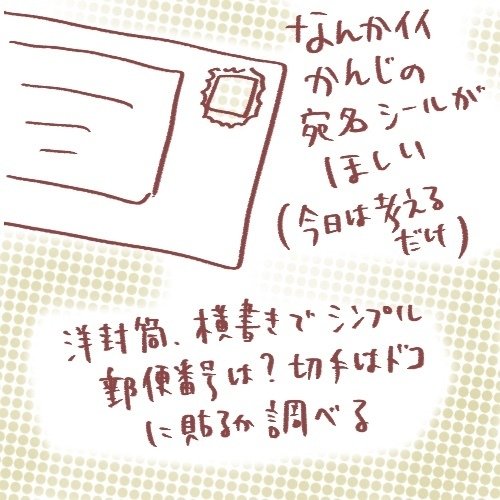 なんかイイ
かんじの
宛名シールが
ほしい
(今日は考える
だけ)
洋封筒、横書きでシンプル
郵便番号は?切手はドコ
に貼るか調べる